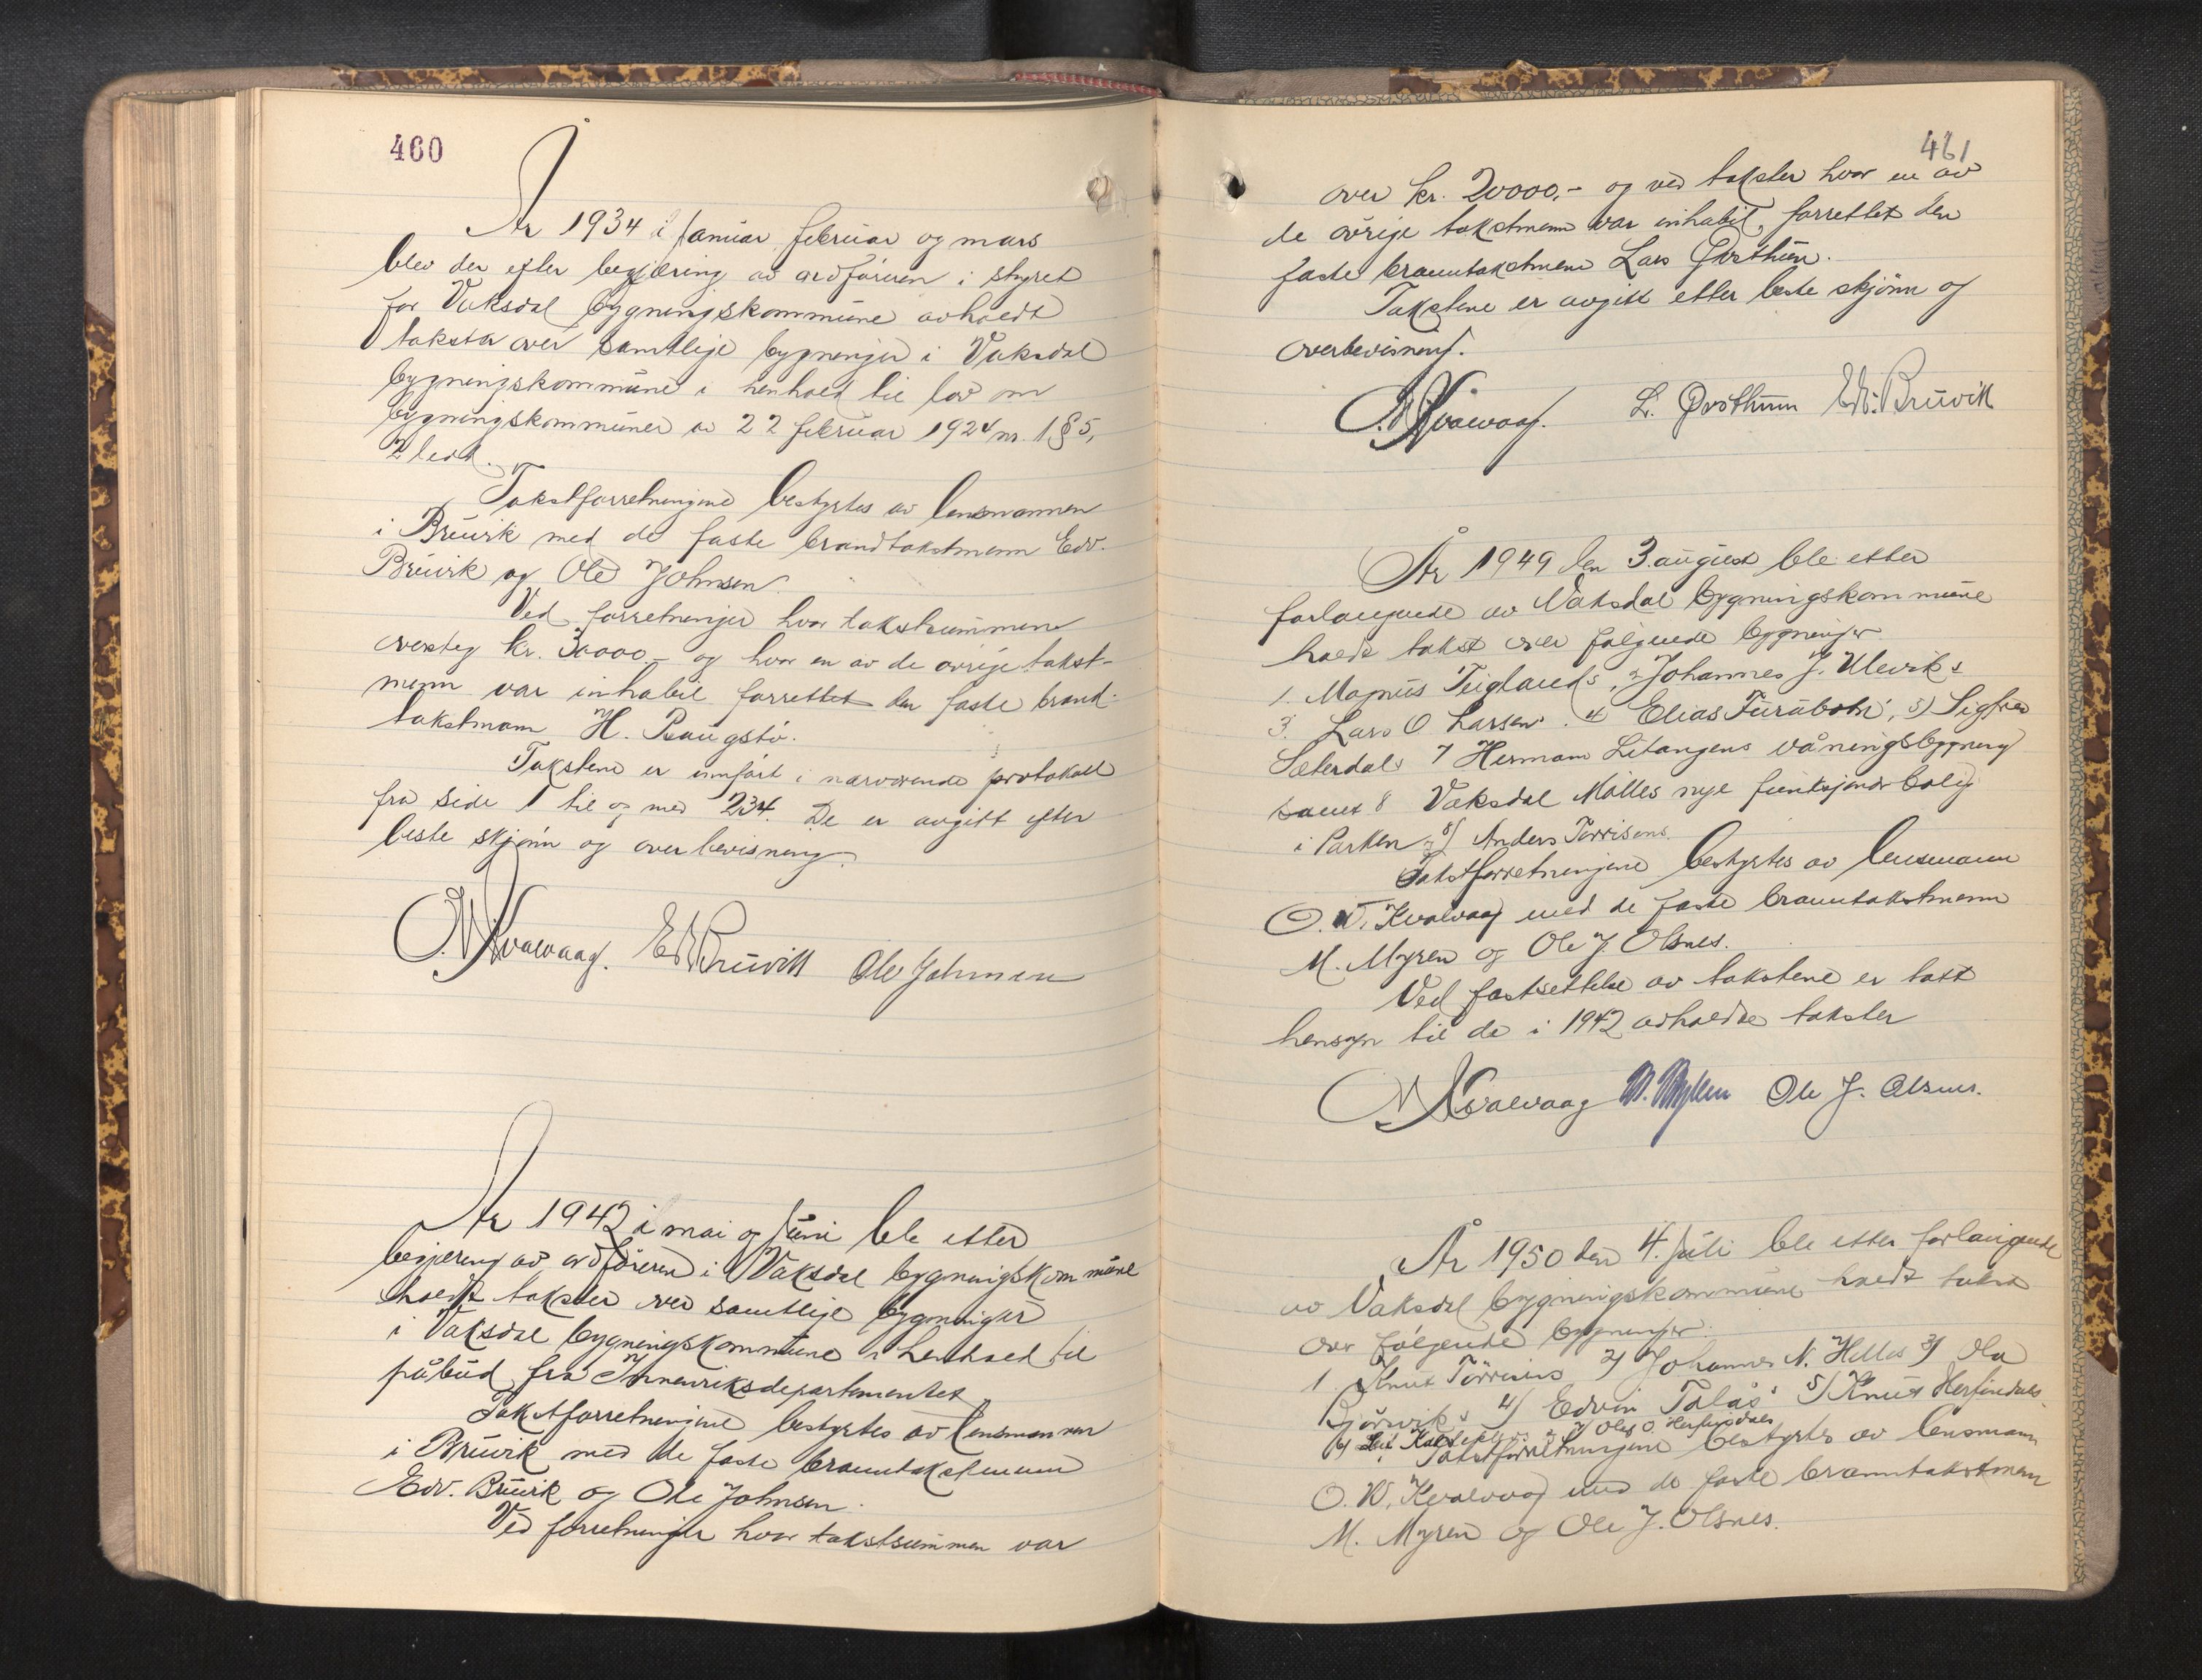 460
År 1934 i januar februar og mars
blev der efter begjæring av ordføreren i styret
for Vaksdal bygningskommune avholdt
takster over samtlige bygninger i Vaksdal
bygningskommune i henhold til lov om
bygningskommuner av 22 februar 1924 nr. 1 § 5,
2 ledd.
Takstforretningene bestyrtes av lensmannen
i Bruvik med de faste brandtakstmenn Edv.
Bruvik og Ole Johnsen.
Ved forretninger hvor takstsummen
oversteg kr. 30000,- og hvor en av de øvrige takst-
menn var inhabil forrettet den faste brand-
takstmann H. Baugstø.
Takstene er innført i nærværende protokoll
fra side 1 til og med 234. De er avgitt efter
beste skjønn og overbevisning.
O.W. Kvalvaag. Edv. Bruvik Ole Johnsen
År 1942 i mai og juni ble etter
begjæring av ordføreren i Vaksdal bygningskommune
holdt takster over samtlige bygninger
i Vaksdal bygningskommune i henhold til
påbud fra Innenriksdepartementet
Takstforretningene bestyrtes av lensmannen
i Bruvik med de faste branntakstmenn
Edv. Bruvik og Ole Johnsen.
Ved forretninger hvor takstsummen var
461
over kr. 20000,- og ved takster hvor en av
de øvrige takstmenn var inhabil, forrettet den
faste branntakstmann Lars Øvsthun.
Takstene er avgitt etter beste skjønn og
overbevisning.
O.W. Kvalvaag. L. Øvsthun Edv. Bruvik
År 1949 den 3. august ble etter
forlangende av Vaksdal bygningskommune
holdt takst over følgende bygninger
1. Magnus Teiglands, 2 Johannes J. Uleviks
3. Lars O. Larsens. 4 Elias Furubotn', 5) Sigfred
Sæterdals 7 Herman Litangens våningsbygning
samt 8 Vaksdal Mølles nye funksjonær bolig
i Parken og 8) Anders Tørrisens
Takstforretningene bestyrtes av lensmann
O. W. Kvalvaag med de faste branntakstmenn
M. Myren og Ole J. Olsnes.
Ved fastsettelse av takstene er tatt
hensyn til de i 1942 avholdte takster
O.W. Kvalvaag M. Myren Ole J. Olsnes.
År 1950 den 4. juli ble etter forlangende
av Vaksdal bygningskommune holdt takst
over følgende bygninger:
1 Knut Tørrisens 2) Johannes N. Helles 3) Ola
Bjørsviks 4) Edvin Talås' 5) Knut Herfindals
6) Leif 7) Olav O. Herfindals
Takstforretningene bestyrtes av lensmann
O. W. Kvalvaag med de faste branntakstmenn
M. Myren og Ole J. Olsnes.